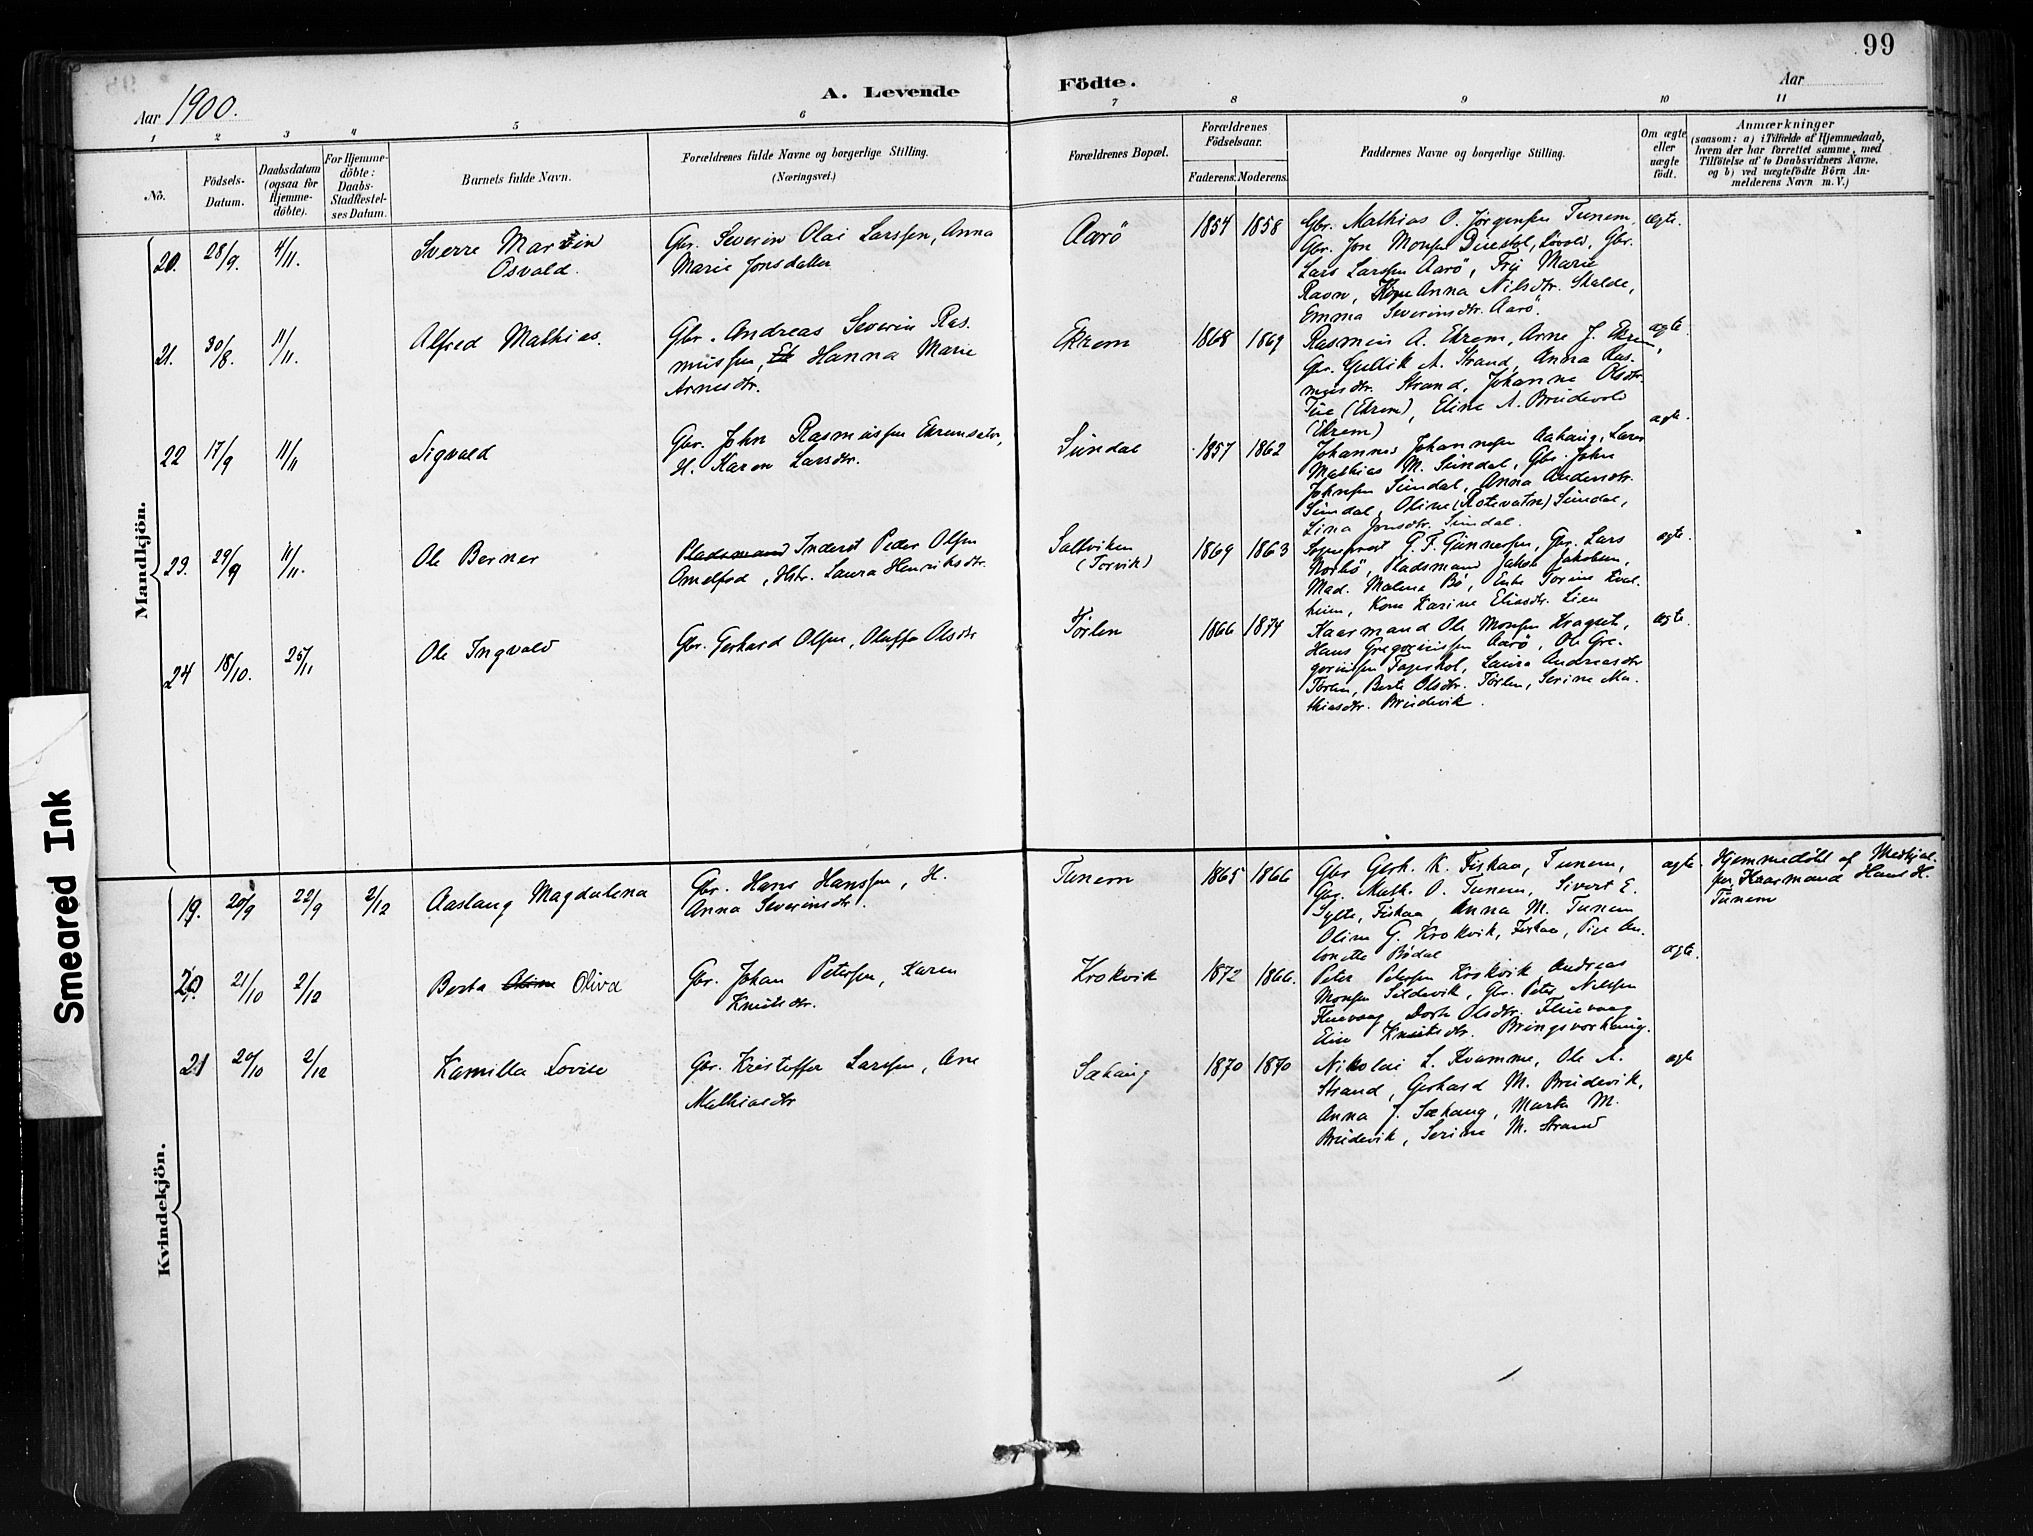 99
Aar 1900.
A. Levende Födte.
Aar
1 2 3 4 5 6 7 8 9 10 11
No.
Födsels-Datum.
Daabsdatum (ogsaa for Hjemme-döbte).
For Hjemme-döbte: Daabs-Stadfæstel-ses Datum.
Barnets fulde Navn.
Forældrenes fulde Navne og borgerlige Stilling.
(Næringsvei.)
Forældrenes Bopæl.
Forældrenes Födselsaar.
Faderens. Moderens.
Faddernes Navne og borgerlige Stilling.
Om ægte eller uægte födt.
Anmærkninger
(saasom: a) i Tilfælde af Hjemmedaab,
hvem der har forrettet samme, med
Tilföielse af to Daabsvidners Navne,
og b) ved uægtefödte Börn An-
melderens Navn m. V.)
Mandkjön.
20. 28/9. 4/11. Sverre Martin Osvald.
Gbr. Severin Olai Larssen, Anna
Marie Jonsdatter
Aarö 1854 1858
Gbr. Mathias O. Jørgensen Tunem,
Gbr. Jon Monsen
Lars Larssen Aarö, Marie
Ravn, Anna Nilsdtr. Skalde,
Emma Severinsdtr. Aarö.
ægte.
21. 30/8. 11/11. Alfred Mathias.
Gbr. Andreas Severin Ras-
mussen, Hanna Marie
Arnesdtr.
Ekrem 1868 1869
Rasmus A. Ekrem, Arne J. Ekrem,
Gbr. Gullik A. Strand, Anna Ras-
musdtr. Strand, Johanne Olsdtr.
(Ekrem), Eline A. Brudevold
(Ekrem)
ægte.
22 17/9 11/11 Sigvald
Gbr. John Rasmussen Ekremsæter,
H. Karen Larsdtr.
Sundal 1857 1862
Johannes Johannessen Aahaug, Lars
Mathias M. Sundal, Gbr. John
Johnsen Sundal, Anna Andersdtr.
Sundal, Oline (Rotevatn) Sundal,
Lina Jonsdtr. Sundal.
ægte.
23. 29/9 11/11. Ole Berner
Pladsmand Inderst Peder Olsen
Amelfod, Hstr. Laura Henriksdtr.
Saltviken
(Torvik)
1869 1863
Sogneprest G. F. Gunnersen, Gbr. Lars
Norbö, Pladsmand Jakob Jakobsen,
Mad. Malena Bö, Enke Torine
heim, Kone Karine Eliasdtr. Lien
ægte.
24 18/10. 25/11 Ole Ingvald
Gbr. Gerhard Olsen, Oluffa Olsdtr
Törlen 1866 1874
Kaarmand Ole Monsen Kragset,
Hans Gregoriussen Aarö, Ole Gre-
goriussen Fagerhol, Laura Andreasdtr
Törlen, Berte Olsdtr. Törlen, Serine Ma-
thiasdtr. Brudevik.
ægte.
Kvindekjön.
19. 20/9 22/9 2/12 Aaslaug Magdalena
Gbr. Hans Hanssen, H.
Anna Severinsdtr.
Tunem 1865 1866
Gbr Gerh. K. Fiskaa, Tunem,
Gbr. Math. O. Tunem, Sivert E.
Sylte, Fiskaa, Anna M. Tunem
Oline G. Krokvik, Fiskaa, Pige An-
tonette Bödal
ægte.
Hjemmedöbt af Medhjæl-
per Kaarmand Hans H.
Tunem
20 21/10 2/12 Berta Oline Oliva
Gbr. Johan Petersen, Karen
Knutsdtr.
Krokvik 1872 1866.
Peter Petersen Krokvik, Andreas
Monsen Sildevik, Gbr. Peter Nilssen
Fluevaag, Dorte Olsdtr. Fluevaag
Eline Knutsdtr. Bringsvorhaug.
ægte.
21 20/10 2/12 Kamilla Lovise
Gbr. Kristoffer Larssen, Ane
Mathiasdtr
Sæhaug 1870 1870
Nikolai L. Kvamme, Ole A.
Strand, Gerhard M. Brudevik,
Anna J. Sæhaug, Marta M.
Brudevik, Serine M. Strand
ægte
Smeared Ink